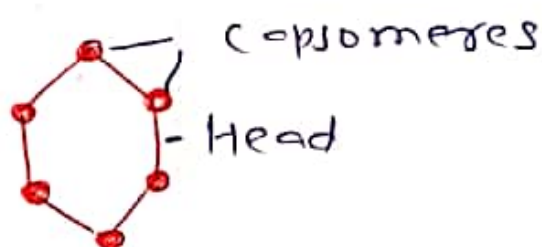 Capsomeres
Head